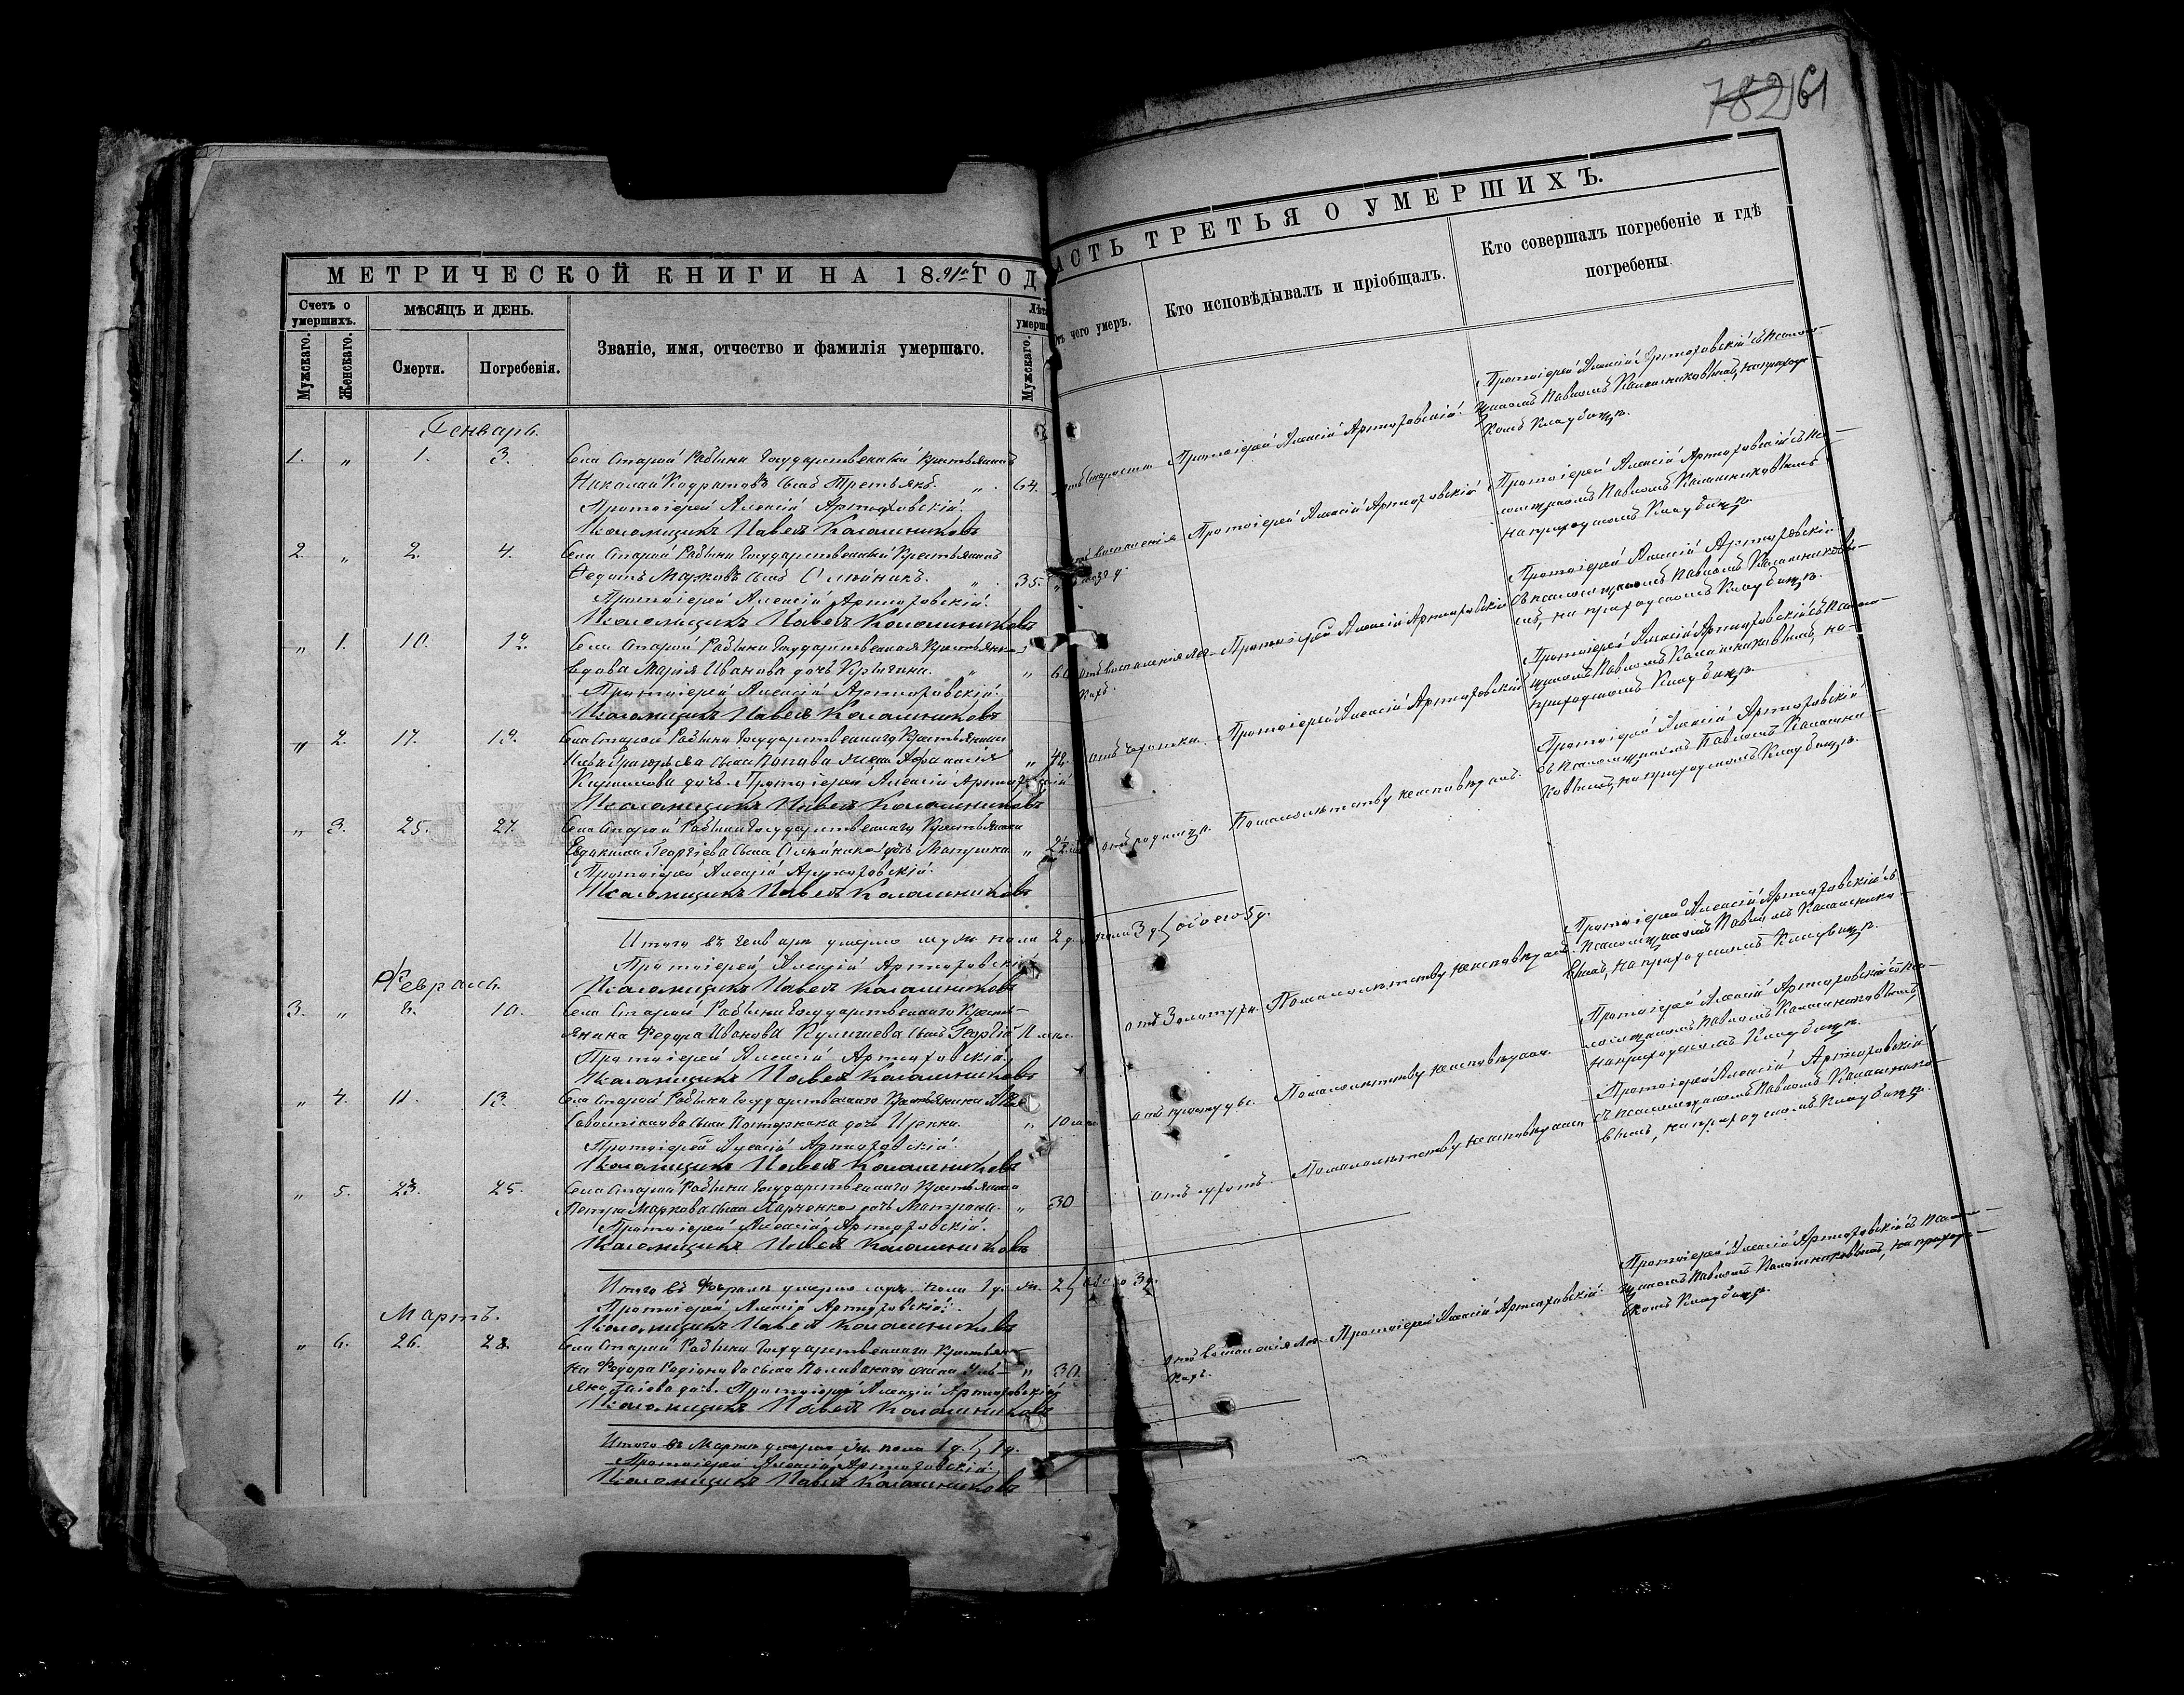 782 61
МЕТРИЧЕСКОЙ КНИГИ НА 1891 ГОД
Счетъ о умершихъ.
Мужскаго.
Женскаго.
МѢСЯЦЪ И ДЕНЬ.
Смерти.
Погребенія.
Званіе, имя, отчество и фамилія умершаго.
Лѣт
умерша
Мужскаго.
Генварь.
1. " 1. 3. Села Старой Рябины Государственный крестьянинъ
Николай сынъ Третьякъ. " 64.
Протоіерей Алексій Артюховскій.
Псаломщикъ Павелъ Калашниковъ
2. " 2. 4. Села Старой Рябины Государственный Крестьянинъ
Федотъ Марковъ сынъ Олейникъ. " 35. "
Протоіерей Алексій Артюховскій.
Псаломщикъ Павелъ Калашниковъ
" 1. 10. 12. Села Старой Рябины Государственная Крестьянка
вдова Марія Иванова дочь " " 60
Протоіерей Алексій Артюховскій.
Псаломщикъ Павелъ Калашниковъ
" 2. 17. 19. Села Старой Рябины Государственнаго Крестьянина
сына Попова жена " 42.
дочь. Протоіерей Алексій Артюховскій
Псаломщикъ Павелъ Калашниковъ
" 3. 25. 27. Села Старой Рябины Государственнаго Крестьянина
Евдокима Георгіева сына Олейника дочь "
Протоіерей Алексій Артюховскій.
Псаломщикъ Павелъ Калашниковъ
Итого въ Генварѣ умерло муж. пола 2 д. пола 3 д. обоего 5 д.
Протоіерей Алексій Артюховскій
Псаломщикъ Павелъ Калашниковъ
Февраль.
3. " 10. Села Старой Рябины Государственнаго Кресть-
янина Федора Иванова сынъ Георгій
Протоіерей Алексій Артюховскій.
Псаломщикъ Павелъ Калашниковъ
" 4. 11. 13. Села Старой Рябины Государственнаго Крестьянина
сына дочь " 10
Протоіерей Алексій Артюховскій.
Псаломщикъ Павелъ Калашниковъ
" 5. 23. 25. Села Старой Рябины Государственнаго Крестьянина
Петра Маркова сына дочь Матрона. " 30
Протоіерей Алексій Артюховскій.
Псаломщикъ Павелъ Калашниковъ
Итого въ Февралѣ умерло муж. пола 1 д. 2 3 д.
Протоіерей Алексій Артюховскій.
Псаломщикъ Павелъ Калашниковъ
Мартъ.
" 6. 26. 28. Села Старой Рябины Государственнаго Крестьяни-
на Федора Родіонова сына жена Уль- " 30.
яна дочь. Протоіерей Алексій Артюховскій
Псаломщикъ Павелъ Калашниковъ
Итого въ Мартѣ умерло ж. пола 1 д. 1 д.
Протоіерей Алексій Артюховскій.
Псаломщикъ Павелъ Калашниковъ
АСТЬ ТРЕТЬЯ О УМЕРШИХЪ.
чего умеръ.
Кто исповѣдывалъ и пріобщалъ.
Кто совершалъ погребеніе и гдѣ
погребены.
Протоіерей Алексій Артюховскій съ псалом-
отъ старости Протоіерей Алексій Артюховскій. щикомъ Павломъ Калашниковымъ, на приход-
комъ кладбищѣ.
Протоіерей Алексій Артюховскій съ пса-
воспаленія Протоіерей Алексій Артюховскій ломщикомъ Павломъ Калашниковымъ
на приходскомъ кладбищѣ.
Протоіерей Алексій Артюховскій
отъ воспаленія Протоіерей Алексій Артюховскій съ псаломщикомъ Павломъ Калашниковы-
мъ, на приходскомъ кладбищѣ.
Протоіерей Алексій Артюховскій съ псалом-
отъ чахотки. Протоіерей Алексій Артюховскій щикомъ Павломъ Калашниковымъ, на
приходскомъ кладбищѣ.
Протоіерей Алексій Артюховскій
отъ родимца. По малолѣтству съ псаломщикомъ Павломъ Калашни-
ковымъ, на приходскомъ кладбищѣ.
Протоіерей Алексій Артюховскій съ
отъ золотухи. По малолѣтству псаломщикомъ Павломъ Калашнико-
вымъ, на приходскомъ кладбищѣ.
Протоіерей Алексій Артюховскій съ пса-
По малолѣтству ломщикомъ Павломъ Калашниковымъ,
на приходскомъ кладбищѣ.
Протоіерей Алексій Артюховскій
отъ По малолѣтству съ псаломщикомъ Павломъ Калашнико-
вымъ, на приходскомъ кладбищѣ.
Протоіерей Алексій Артюховскій съ псалом-
отъ воспаленія Протоіерей Алексій Артюховскій. щикомъ Павломъ Калашниковымъ, на приход-
скомъ кладбищѣ.